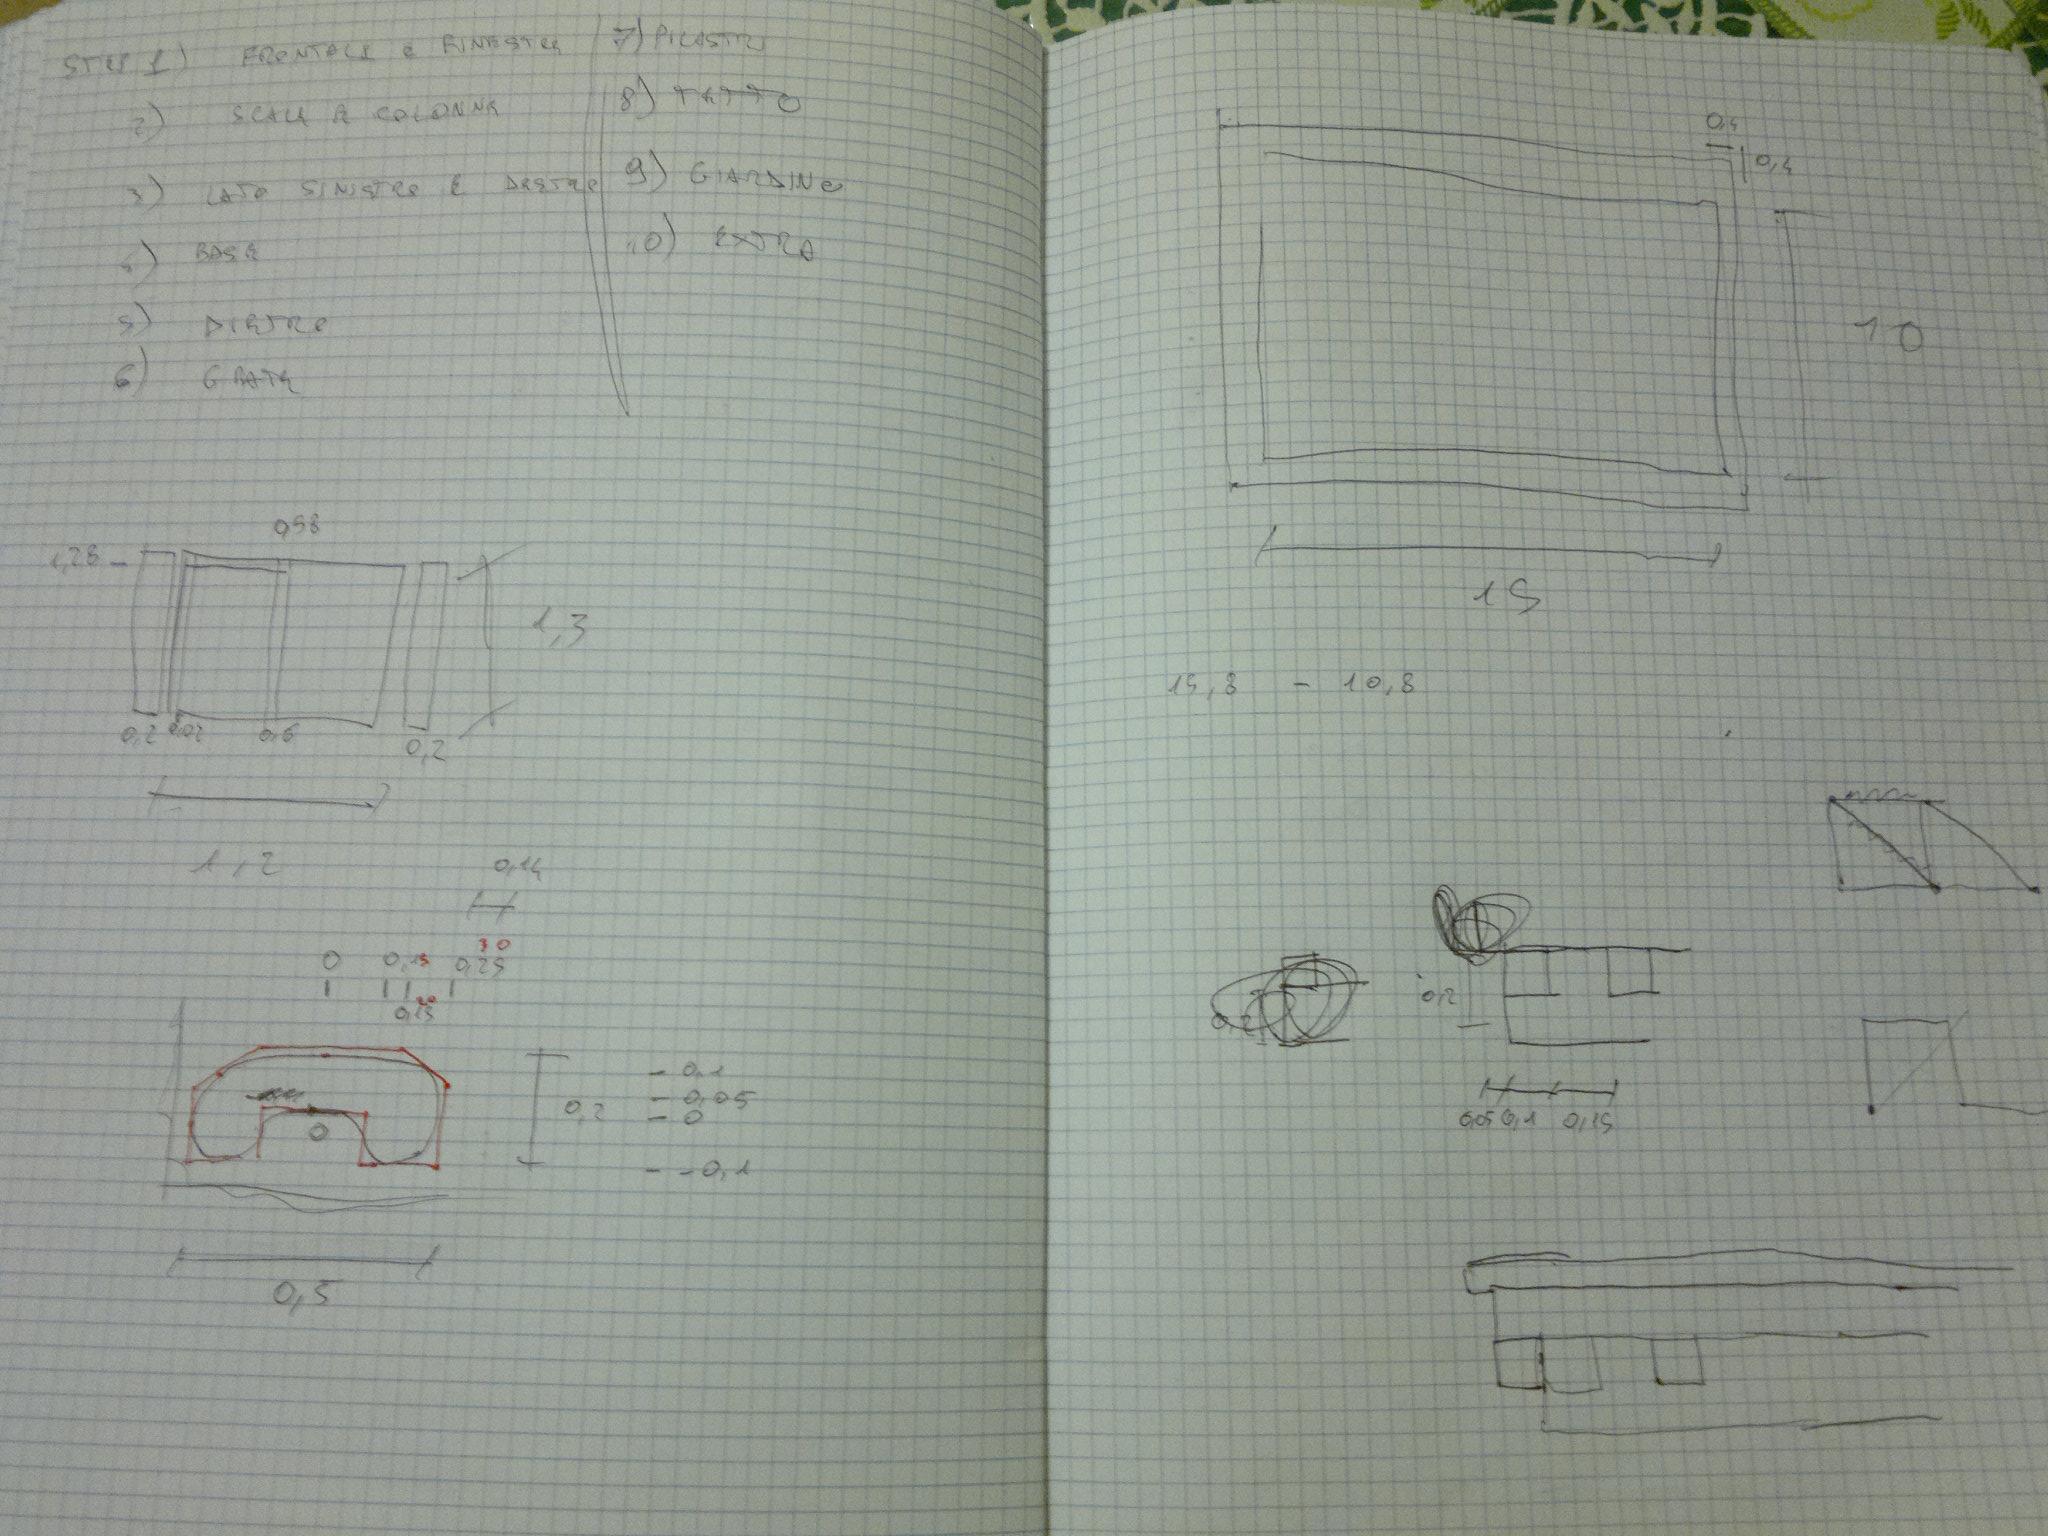 STEP 1) FRONTALE E FINESTRE
2) SCALE E COLONNE
3) LATO SINISTRO E DESTRO
4) BASE
5) DIETRO
6) GRATE
7) PILASTRI
8) TETTO
9) GIARDINO
10) EXTRA
0,58
1,28 -
1,3
0,2 0,02 0,6 0,2
1,2
0,14
30
0 0,15 0,25
0
0,2
- 0,1
- 0,05
- 0
- -0,1
0,5
0,4
0,4
10
15
15,8 - 10,8
0,2
0,2
0,05 0,1 0,15